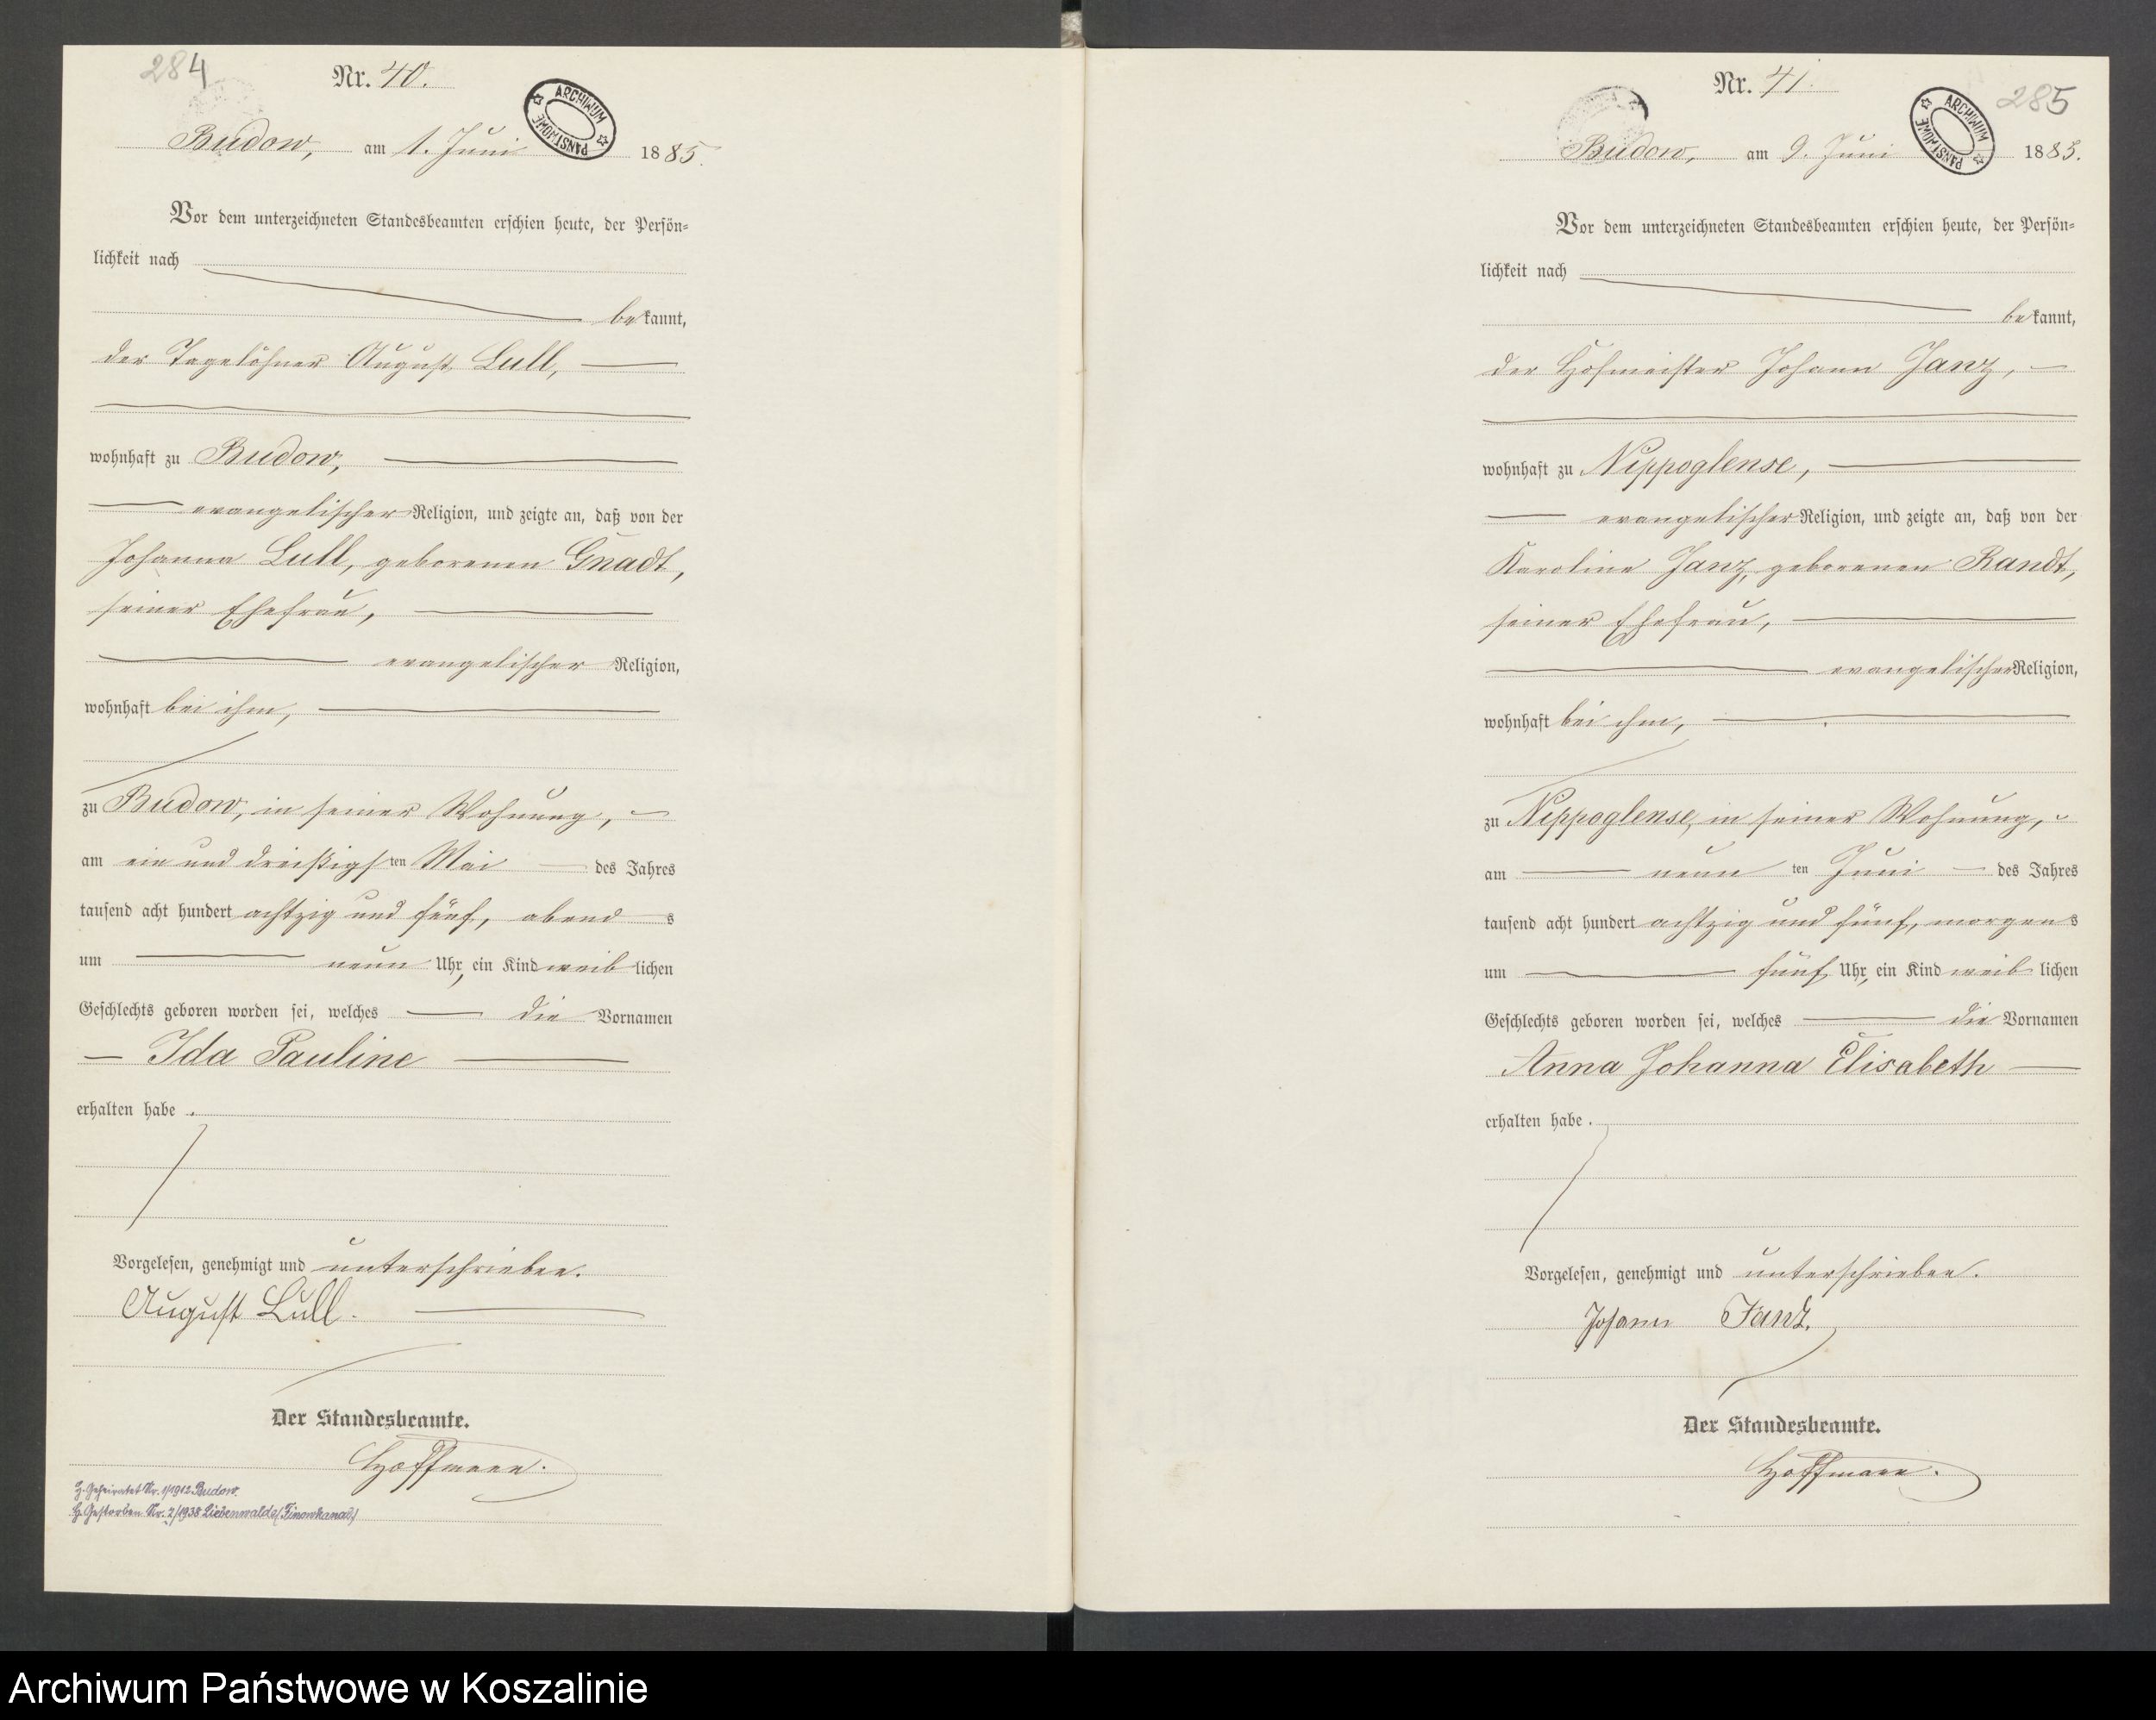 284
Nr. 40.
ARCHIWUM PAŃSTWOWE
Budow, am 1. Juni 1885.
Vor dem unterzeichneten Standesbeamten erschien heute, der Persön=
lichkeit nach
bekannt,
der Tagelöhner August Lull,
wohnhaft zu Budow,
evangelischer Religion, und zeigte an, daß von der
Johanna Lull, geborenen Gnadt,
seiner Ehefrau,
evangelischer Religion,
wohnhaft bei ihm,
zu Budow, in seiner Wohnung,
am ein und dreißigsten Mai des Jahres
tausend acht hundert achtzig und fünf, abends
um neun Uhr, ein Kind weiblichen
Geschlechts geboren worden sei, welches die Vornamen
Ida Pauline
erhalten habe.
Vorgelesen, genehmigt und unterschrieben.
August Lull.
Der Standesbeamte.
Hoffmann.
Z. Geheiratet Nr. 1/1912 Budow.
Gestorben Nr. 2/1938 Liebenwalde (Finowkanal)
Nr. 41.
285
ARCHIWUM PAŃSTWOWE
Budow, am 9. Juni 1885.
Vor dem unterzeichneten Standesbeamten erschien heute, der Persön=
lichkeit nach
bekannt,
der Hofmeister Johann Janz,
wohnhaft zu Nippoglense,
evangelischer Religion, und zeigte an, daß von der
Karoline Janz, geborenen Randt,
seiner Ehefrau,
evangelischer Religion,
wohnhaft bei ihm,
zu Nippoglense, in seiner Wohnung,
am neunten Juni des Jahres
tausend acht hundert achtzig und fünf, morgens
um fünf Uhr, ein Kind weiblichen
Geschlechts geboren worden sei, welches die Vornamen
Anna Johanna Elisabeth
erhalten habe.
Vorgelesen, genehmigt und unterschrieben.
Johann Janz.
Der Standesbeamte.
Hoffmann.
Archiwum Państwowe w Koszalinie